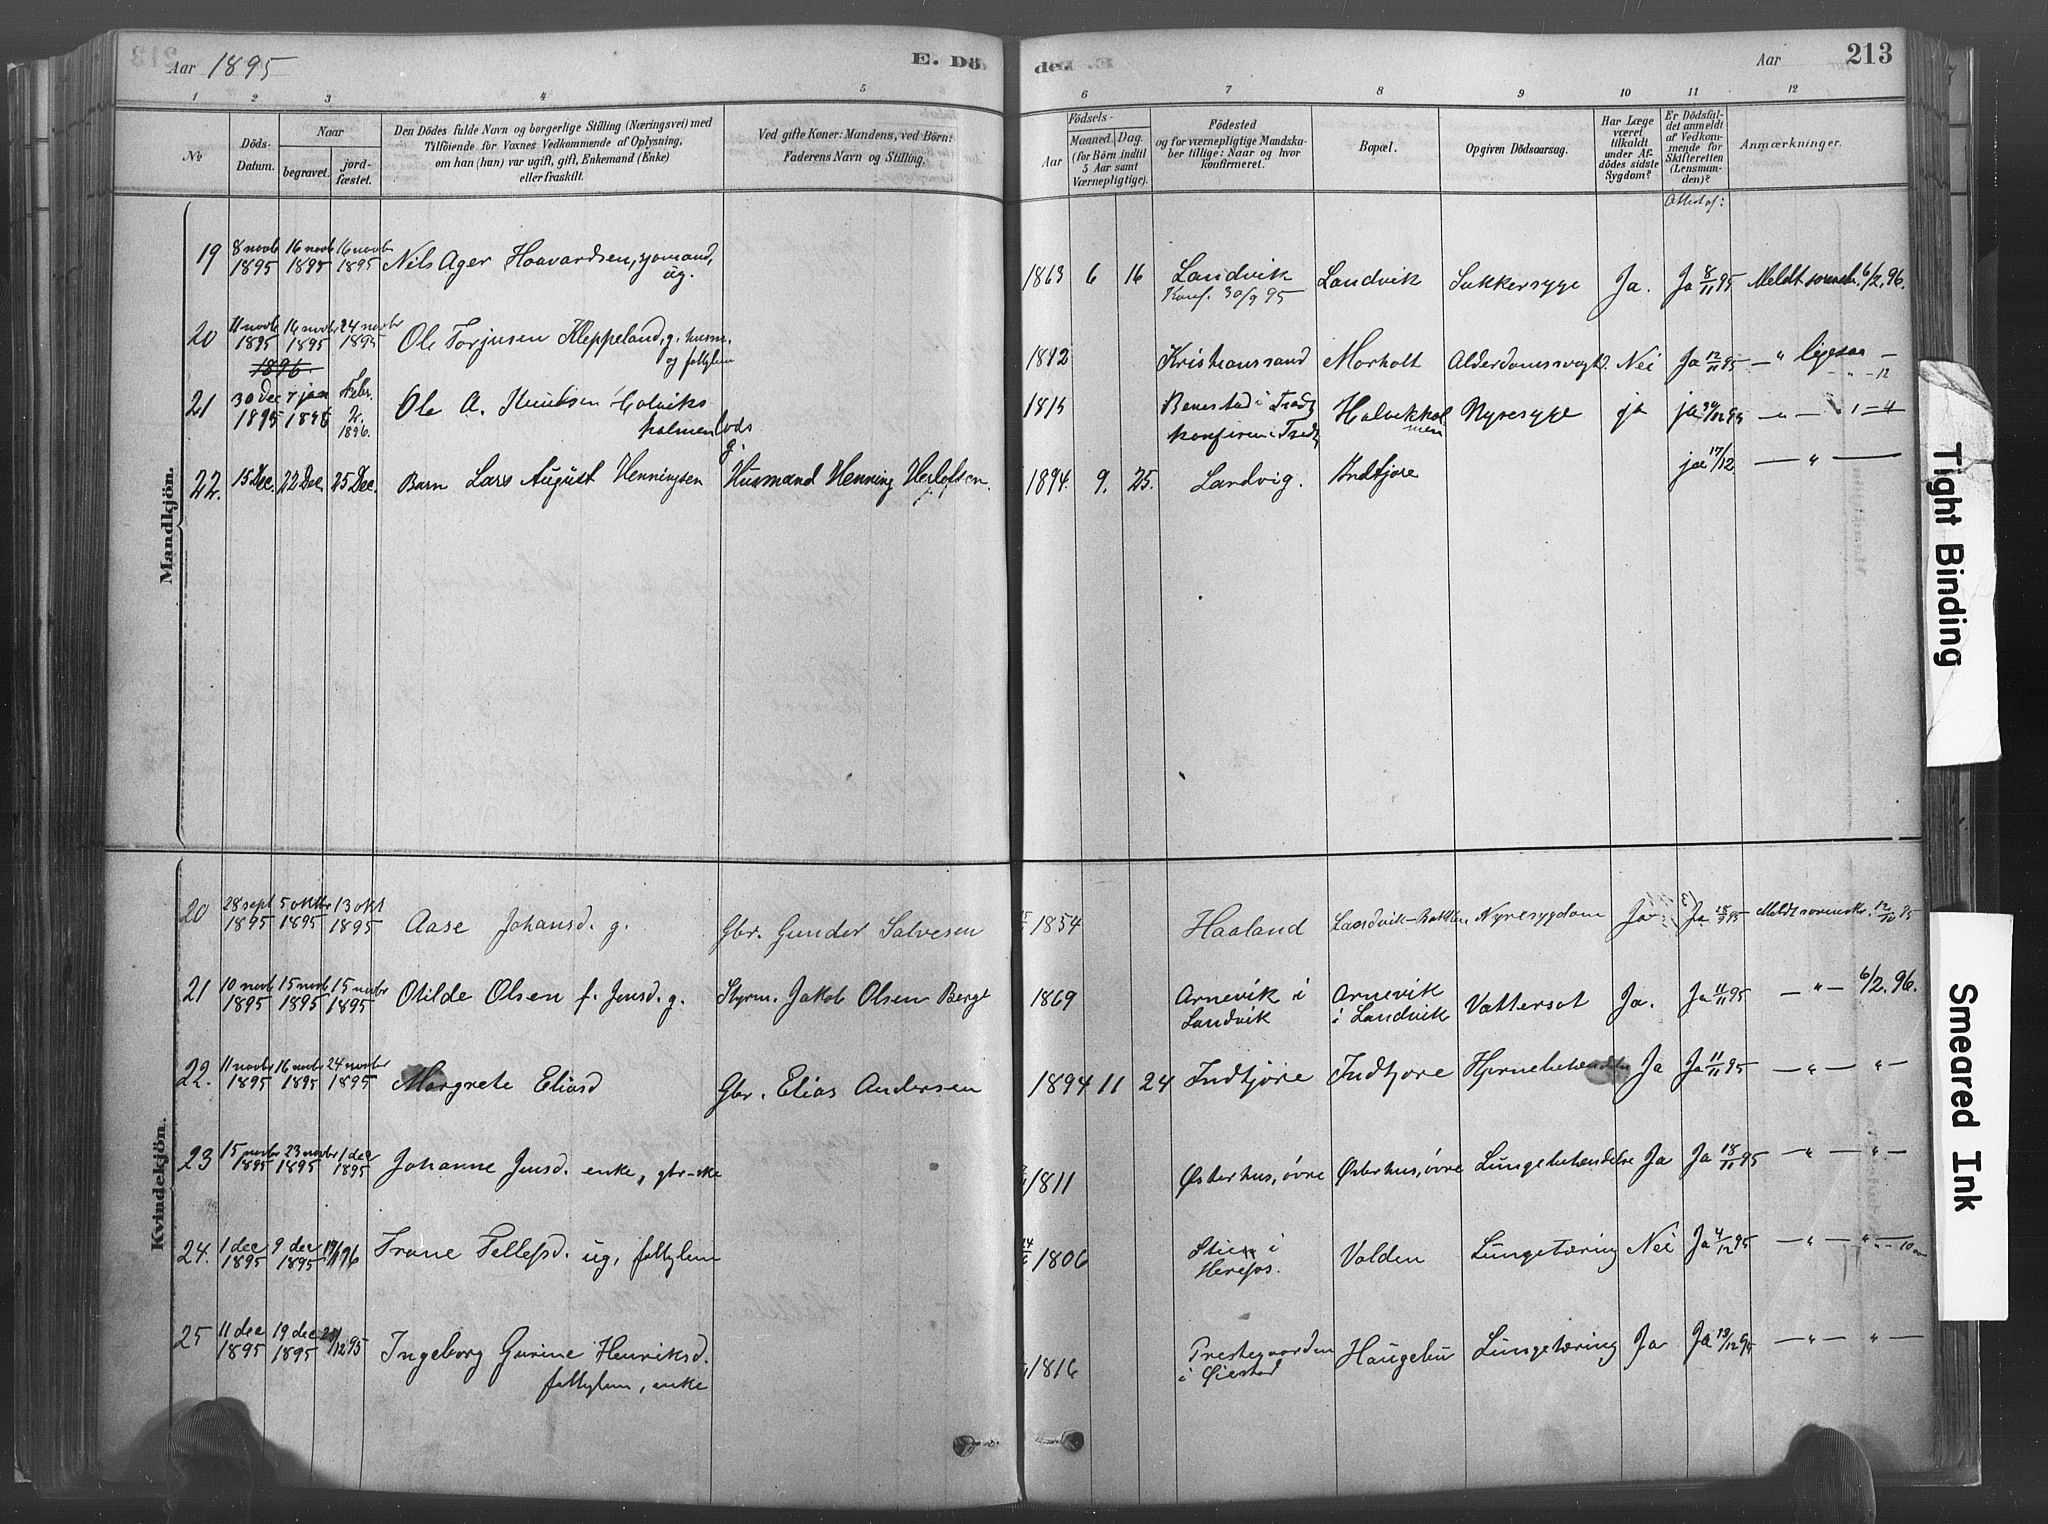 Aar 1895
E. Dö
de.
Aar
213
1 2 3 4 5 6 7 8 9 10 11 12
No
Döds-Datum.
Naar
begravet.
jord-fæstet.
Den Dödes fulde Navn og borgerlige Stilling (Næringsvei) med
Tilföiende for Voxnes Vedkommende af Oplysning,
om han (hun) var ugift, gift, Enkemand (Enke)
eller fraskilt.
Ved gifte Koner: Mandens, ved Börn:
Faderens Navn og Stilling.
Födsels-
Aar
Maaned. Dag.
(for Börn indtil
5 Aar samt
Værnepligtige).
Födested
og for værnepligtige Mandska-
ber tillige: Naar og hvor
konfirmeret.
Bopæl.
Opgiven Dödsaarsag.
Har Læge
været
tilkaldt
under Af-
dödes sidste
Sygdom?
Er Dödsfal-
det anmeldt
af Vedkom-
mende for
Skifteretten
(Lensman-
den)?
Anmærkninger.
Attest af:
Mandkjön.
19 8 novb 1895 16 novb 1895 16 novbr 1895 Nils Ager Haavardsen, sjømand, ug. 1863 6 16 Landvik Konf. 30/9 95 Landvik Sukkersyge Ja. Ja 8/11 95 Meldt sorenskr. 6/2. 96.
20 11 novb 1895 16 novbr 1895 24 novbr 1895 Ole Torjusen Kleppeland, g. husm. og fattylem 1812 Kristianssand Morholt Alderdomssvagh. Nei Ja 12/11 95 — " —
1896.
21 30 Dec 1895 7 jan 1896 Febr. 2. 1896. Ole A. Knudsen Holviks holmen Lods g. 1815 Benestad i Tredt konfirm i Tredt Holvikhol men Nyresyge ja 30/12 95 — " —
22. 15 Dec. 22 Dec. 25 Dec. Barn Lars August Henningsen Husmand Henning Herlofsen. 1894. 9. 25. Landvig. Indtjore jae 17/12 — " —
Kvindekjön.
20 28 sept 1895 5 oktbr 1895 13 okt 1895 Aase Johansd. g. Gbr. Gunder Salvesen 1854 Haaland Landvik-Bakken Nyresygdom Ja Ja 95 Meldt sorenskr. 12/10 95
21 10 novb 1895 15 novb 1895 15 novbr 1895 Otilde Olsen f. Jensd. g. Styrm. Jakob Olsen Berge 1869 Arnevik i Landvik Arnevik i Landvik Vattersot Ja. Ja 11/11 95 — " — 6/2. 96.
22. 11 novbr 1895 16 novbr 1895 24 novbr 1895 Margrete Eliasd Gbr. Elias Andersen 1894 11 24 Indtjøre Indtjøre Hjernebetændelse Ja Ja 11/11 95 — " — " —
23 15 novbr 1895 23 novbr 1895 1 dec 1895 Johanne Jensd. enke, gbr-ke 1811 Østerhus, övre Østerhus, övre Lungebetændelse Ja Ja 18/11 95 — " — " —
24. 1 dec 1895 9 dec 1895 19/1 96 Trone Tellefsd. ug, fattylem 1806 i Herefos. Volden Lungetæring Nei Ja 4/12 95 — " — " —
25 11 dec 1895 19 dec 1895 /12 95 Ingeborg Gurine Henriksd. fattylem, enke 1816 Prestegaarden i Øiestad Haugebu Lungetæring Ja Ja 13/12 95 — " — " —
Tight Binding
Smeared Ink